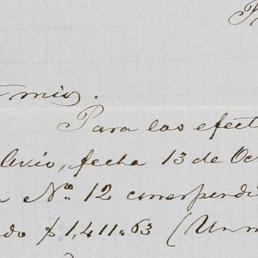 mio.
Para los efect
Avio, fecha 13 de Oc
Nº 12 correspondi
do $ 1,411.63 (Un m